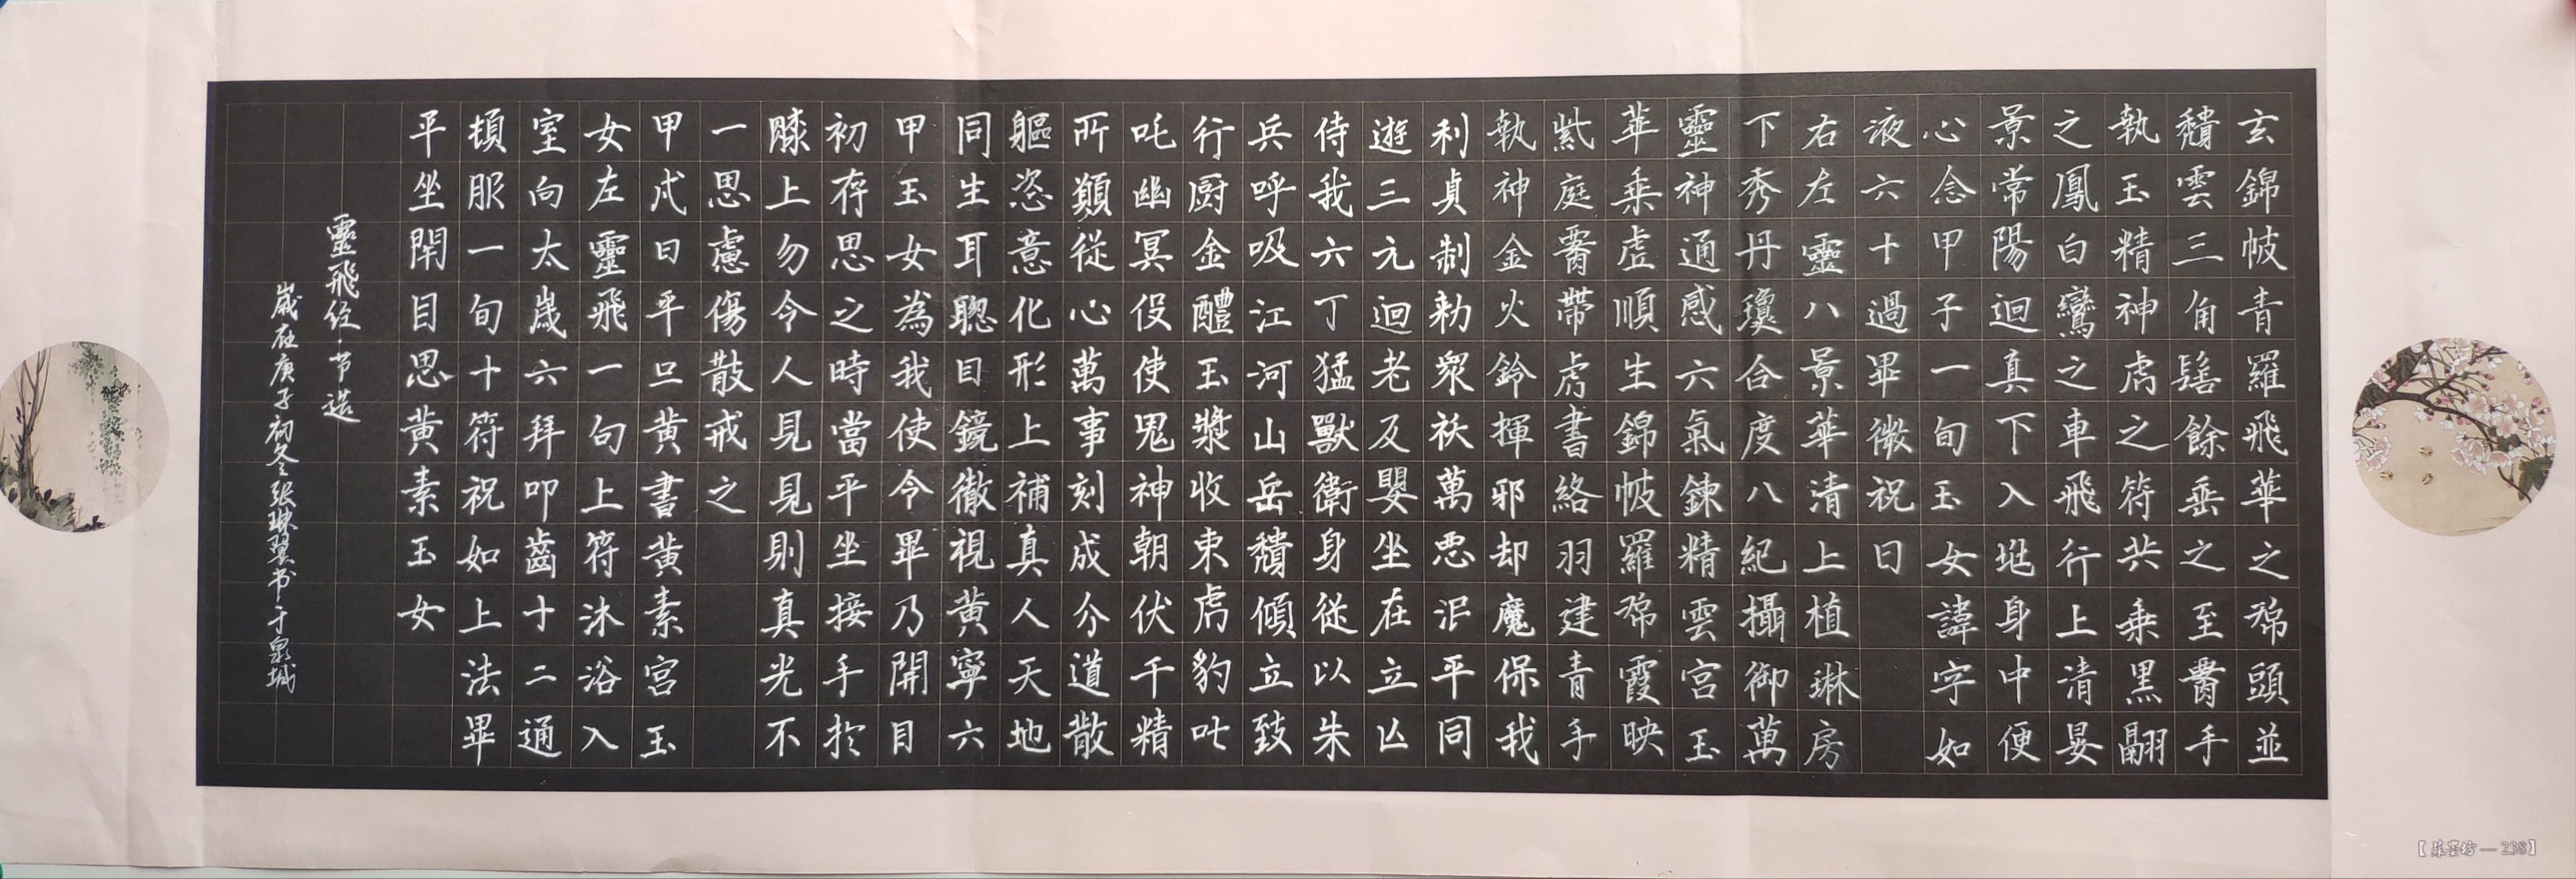 玄錦帔青羅飛華之帬頭並
穨雲三角髻餘垂之至䁥手
執玉精神虎之符共乗黑翮
之鳳白鸞之車飛行上清晏
景常陽迴真下入𡊩身中便
心念甲子一旬玉女諱字如
液六十過畢微祝曰
右左靈八景華清上植琳房
下秀丹瓊合度八紀攝御萬
靈神通感六氣鍊精雲宮玉
華乗虛順生錦帔羅帬霞映
紫庭䁥帶虎書絡羽建青手
執神金火鈴揮邪却魔保我
利貞制勑衆祅萬惡泯平同
遊三元迴老反嬰坐在立亾
侍我六丁猛獸衛身從以朱
兵呼吸江河山岳穨傾立致
行厨金醴玉漿收束虎豹叱
吒幽冥役使鬼神朝伏千精
所願從心萬事刻成分道散
軀恣意化形上補真人天地
同生耳聰目鏡徹視黄寧六
甲玉女為我使令畢乃開目
初存思之時當平坐接手於
膝上勿令人見見則真光不
一思慮傷散戒之
甲戌日平旦黄書黄素宮玉
女左靈飛一旬上符沐浴入
室向太歲六拜叩齒十二通
頓服一旬十符祝如上法畢
平坐閇目思黄素玉女
靈飛经·节选
歲在庚子初冬张琳翼书于泉城
【華墨坊—238】